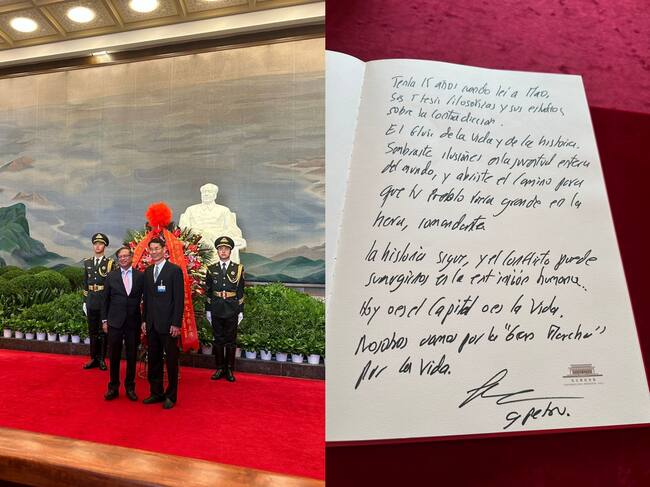 Tenía 15 años cuando leí a Mao,
Sus Tesis filosóficas y sus estudios
sobre la contradicción.
El fluir de la vida y de la historia.
Sembraste ilusiones en la juventud entera
del mundo, y abriste el camino para
que tu Pueblo fuera grande en la
tierra, comandante.
La historia sigue, y el conflicto puede
sumergirnos en la extinción humana.
Hoy o es el Capital o es la Vida.
Nosotros vamos por la "Gran Marcha"
por la Vida.
G Petro.